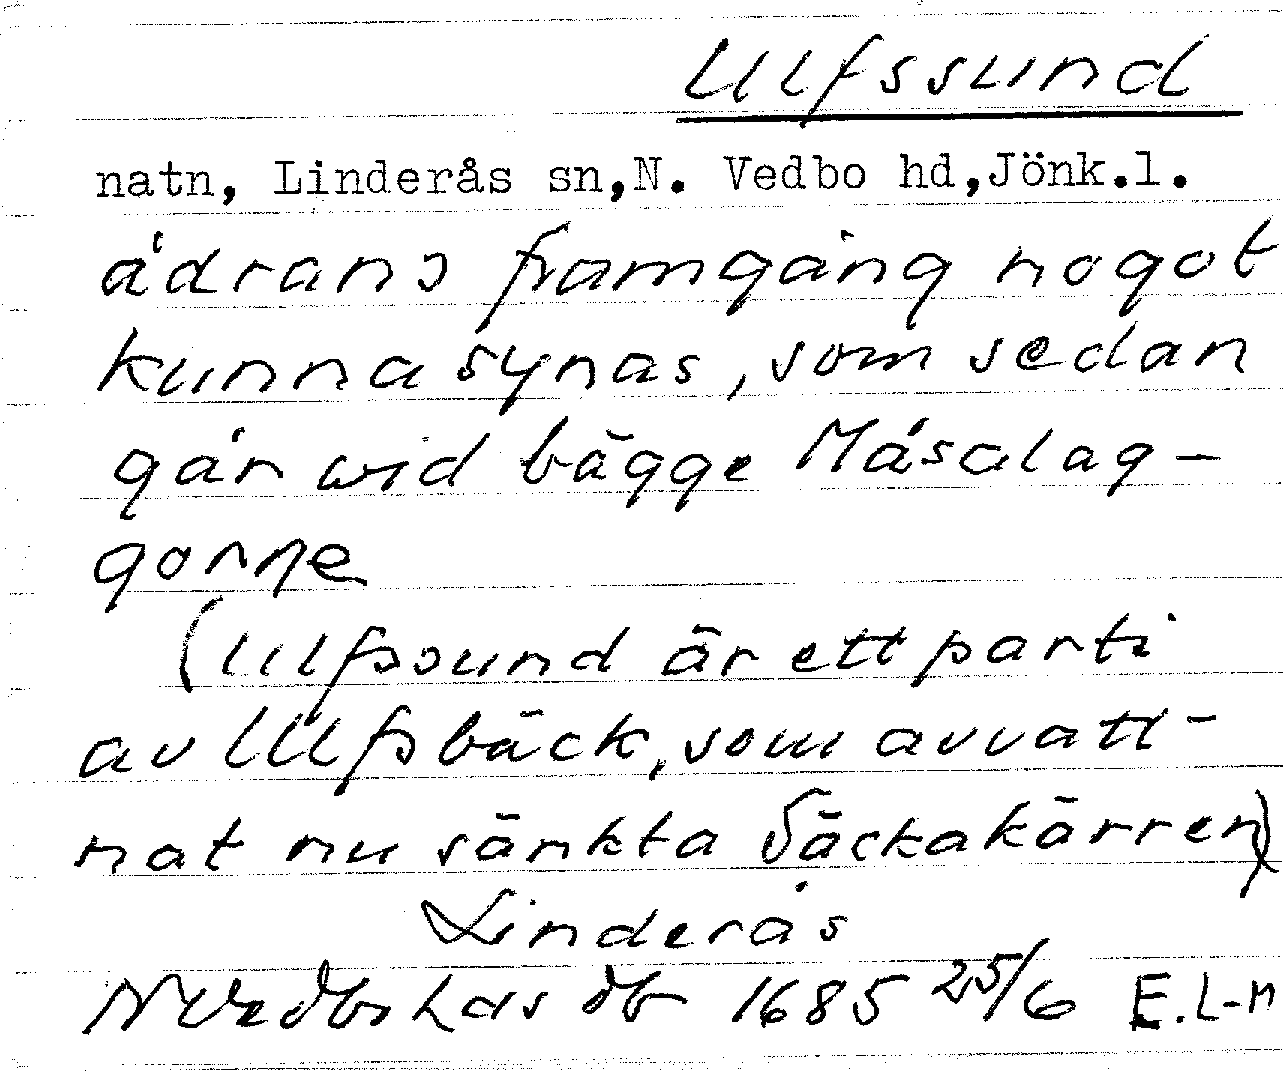 Ulfssund
natn, Linderås sn,N. Vedbo hd,Jönk.l.
ådrans framgång nogot
kunna synas, som sedan
går wid bägge Måsalag-
gorne
(Ulfssund är ett parti
av Ulfsbäck, som avvatt-
nat nu sänkta Säckakärren)
Linderås
N Vedbo hds db 1685 25/6 E.L-n